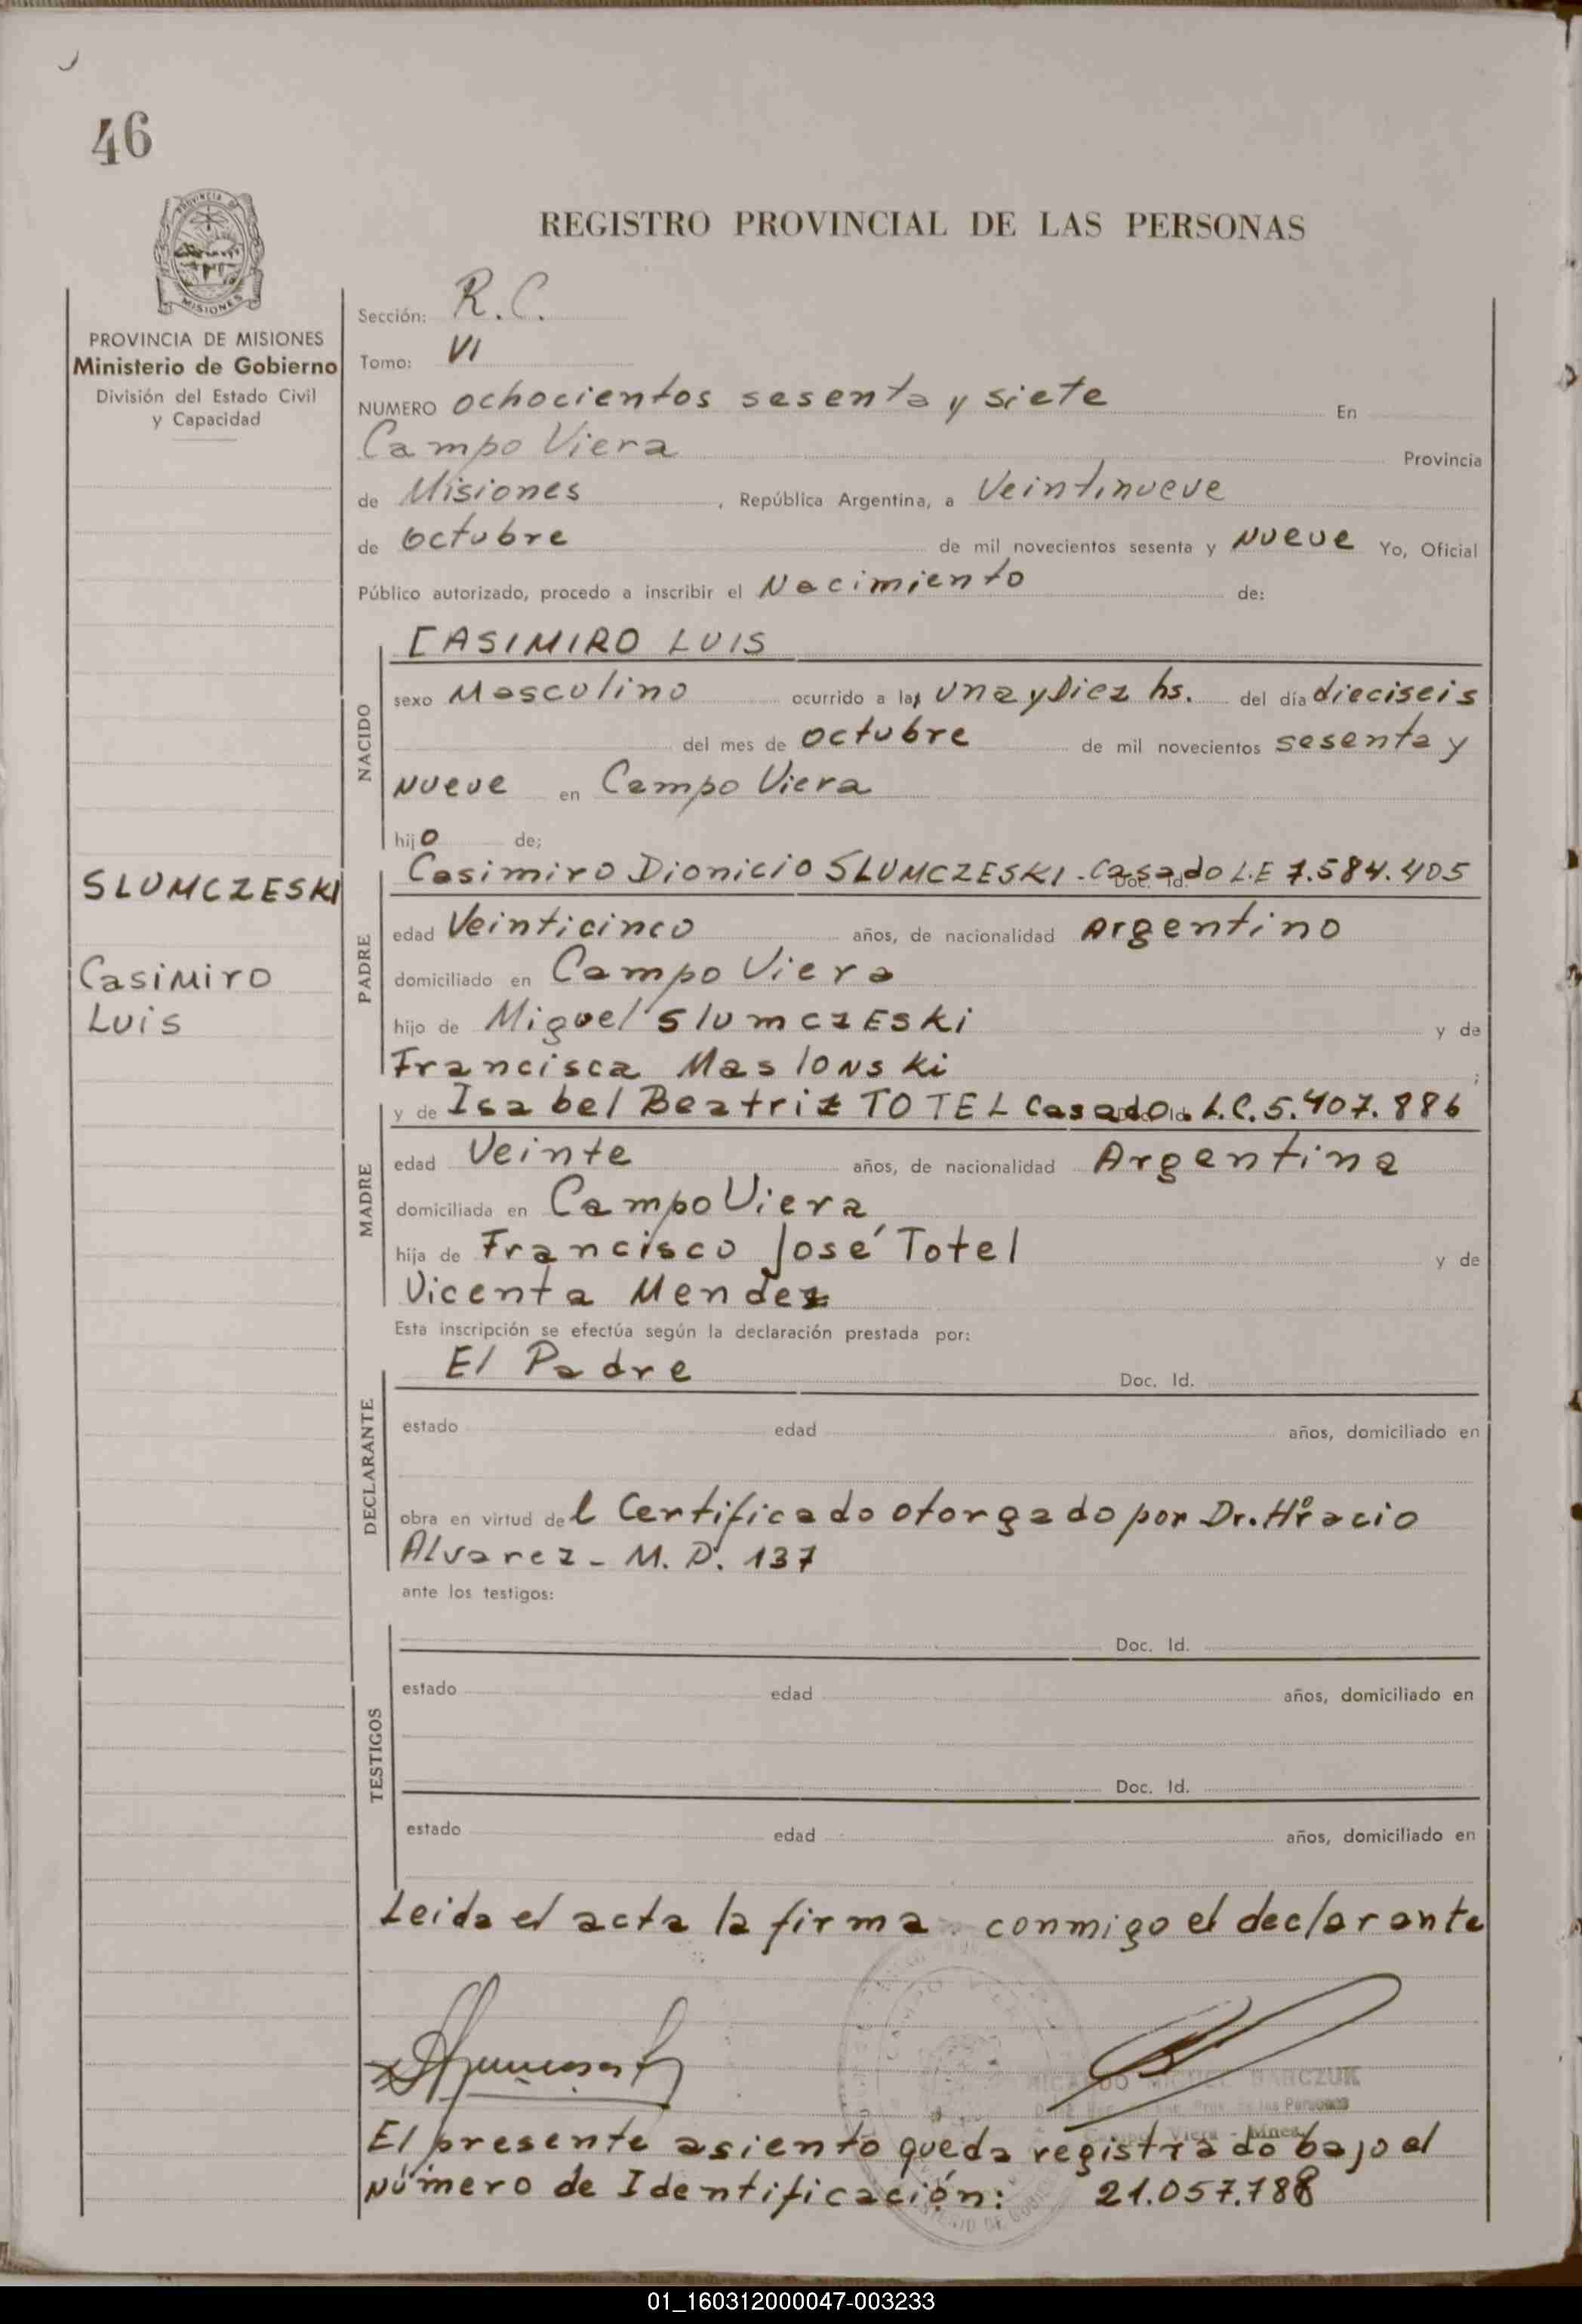 46
PROVINCIA DE
MISIONES
PROVINCIA DE MISIONES
Ministerio de Gobierno
División del Estado Civil
y Capacidad
REGISTRO PROVINCIAL DE LAS PERSONAS
Sección: R.C.
Tomo: VI
NUMERO ochocientos sesenta y siete En
Campo Viera Provincia
de Misiones, República Argentina, a Veintinueve
de octubre de mil novecientos sesenta y Nueve Yo, Oficial
Público autorizado, procedo a inscribir el Nacimiento de:
NACIDO
CASIMIRO LUIS
sexo Masculino ocurrido a las una y Diez hs. del día dieciseis
del mes de octubre de mil novecientos sesenta y
Nueve en Campo Viera
hijo de;
SLUMCZESKI
Casimiro
Luis
PADRE
Casimiro Dionicio SLUMCZESKI - Casado L.E 7.584.405
edad Veinticinco años, de nacionalidad Argentino
domiciliado en Campo Viera
hijo de Miguel SlumczEski y de
Francisca MaslONski ;
MADRE
y de Isabel Beatriz TOTEL Casado L.C. 5.407.886
edad Veinte años, de nacionalidad Argentina
domiciliada en Campo Viera
hija de Francisco José Totel y de
Vicenta Mendez
Esta inscripción se efectúa según la declaración prestada por:
DECLARANTE
El Padre Doc. Id.
estado edad años, domiciliado en
obra en virtud del Certificado otorgado por Dr. Hºracio
Alvarez - M. P. 137
ante los testigos:
TESTIGOS
Doc. Id.
estado edad años, domiciliado en
Doc. Id.
estado edad años, domiciliado en
Leida el acta la firma conmigo el declarante
RICARDO MIGUEL BARCZUK
de las Personas
Campo Viera - Mnes.
El presente asiento queda registrado bajo el
Número de Identificación: 21.057.188
01_160312000047-003233